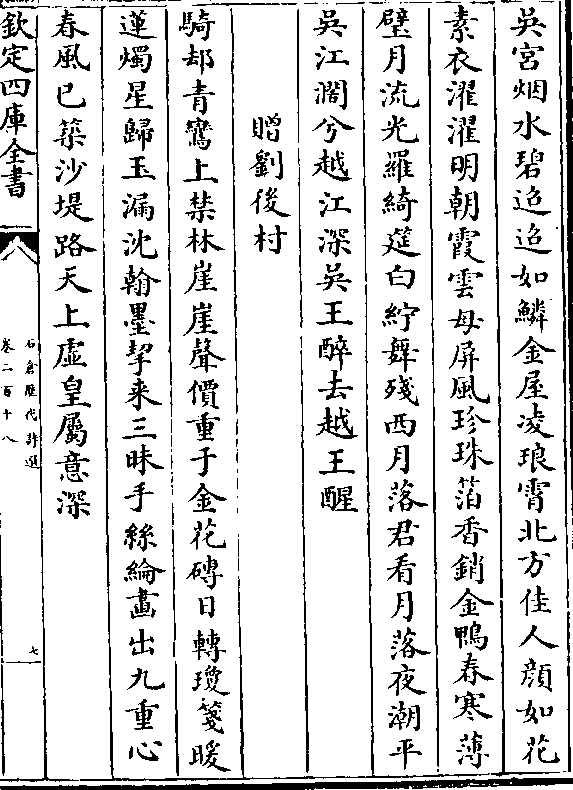 吳宫烟水碧迢迢如鱗金屋凌琅霄北方佳人顔如花
素衣濯濯明朝霞雲母屏風珍珠箔香銷金鴨春寒薄
璧月流光羅綺筵白紵舞殘西月落君看月落夜潮平
吳江濶兮越江深吳王醉去越王醒
贈劉後村
騎却青鸞上禁林崖崖聲價重于金花磚日轉瓊箋暖
蓮燭星歸玉漏沈翰墨挈来三昧手絲綸畫出九重心
春風已築沙堤路天上虚皇屬意深
欽定四庫全書
石倉歴代詩選
卷二百十八
七